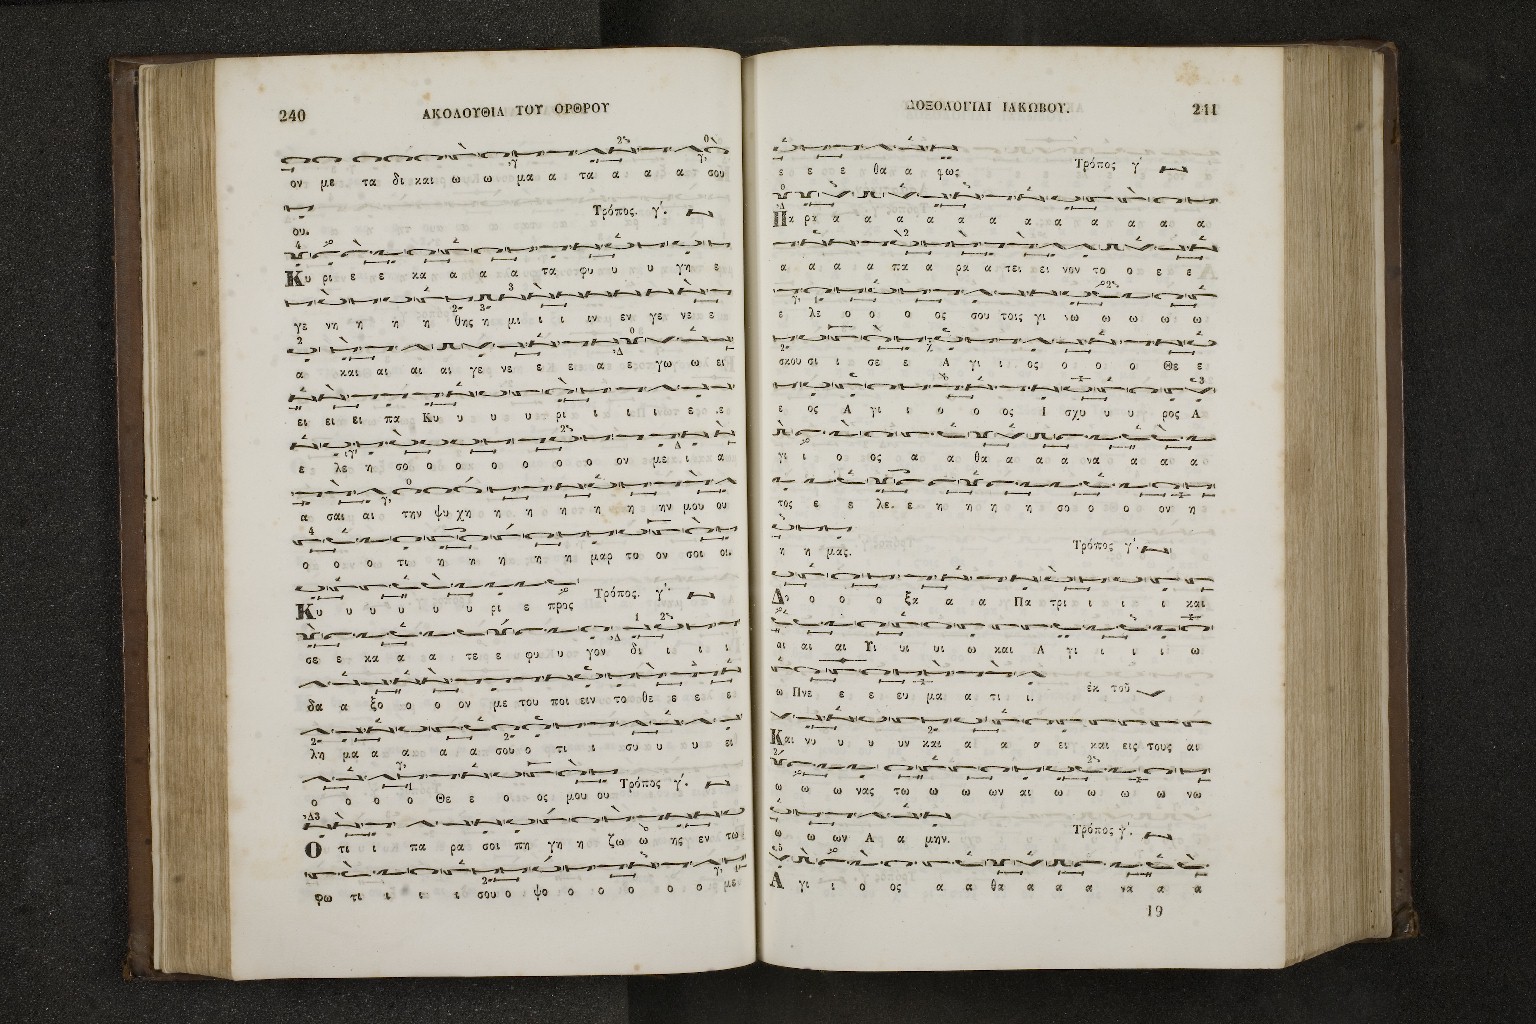 240
ΑΚΟΛΟΥΘΙΑ ΤΟΥ ΟΡΘΡΟΥ
ον με τα δι και ω ω μα α τα α α α σου
Τρόπος. γ΄.
ου.
Κυ ρι ε ε κα α α α τα φυ υ υ υ γη ε
γε νη η η η θης η μι ι ι ιν εν γε νε ε
α και αι αι αι γε νε ε ε α ε γω ω ει
ει ει ει πα Κυ υ υ υ ρι ι ι ι ε ε
ε λε η σο ο ο ο ο ο ο ον με ι α
α σαι αι την ψυ χη η η η η η η ην μου ου
ο ο ο τι η η η η μαρ το ον σοι οι.
Τρόπος. γ΄.
Κυ υ υ υ υ υ ρι ε προς
σε ε κα α α τε ε φυ υ γον δι ι ι ι
δα α ξο ο ο ον με του ποι ειν το θε ε ε ε
λη μα α α α α σου ο τι ι συ υ υ ει
Τρόπος γ΄.
ο ο ο ο Θε ε ο ος μου ου
Ο τι ι πα ρα σοι πη γη η ζω ω ης εν τω
φω τι ι ι ι σου ο ψο ο ο ο ο ο με
ΔΟΞΟΛΟΓΙΑΙ ΙΑΚΩΒΟΥ.
241
Τρόπος γ΄
ε ε ε θα α φως
Πα ρα α α α α α α α α α α α
α α α α πα α ρα α τει ει νον το ο ε ε
ε λε ο ο ο ος σου τοις γι ω ω ω ω ω
σκου σι ι σε ε Α γι ι ος ο ο ο Θε ε
ε ος Α γι ι ο ο ος Ι σχυ υ υ ρος Α
γι ι ο ος α α θα α α α να α α α
τος ε ε λε ε η η η η σο ο ο ον η
Τρόπος γ΄.
η η μας.
Δο ο ο ο ξα α α Πα τρι ι ι ι και
αι αι αι Υι υι υι ω και Α γι ι ι ι ω
ω Πνε ε ε ευ μα α τι ι.
ἐκ τοῦ
Και νυ υ υ υν και α α α ει και εις τους αι
ω ω ω νας τω ω ω ων αι ω ω ω ω νω
ω ω ων Α α μην.
Τρόπος γ΄.
Α γι ι ο ος α α θα α α α να α α
19